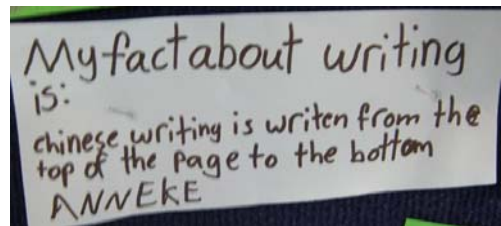 My fact about writing
is:
chinese writing is writen from the
top of the page to the bottom
ANNEKE